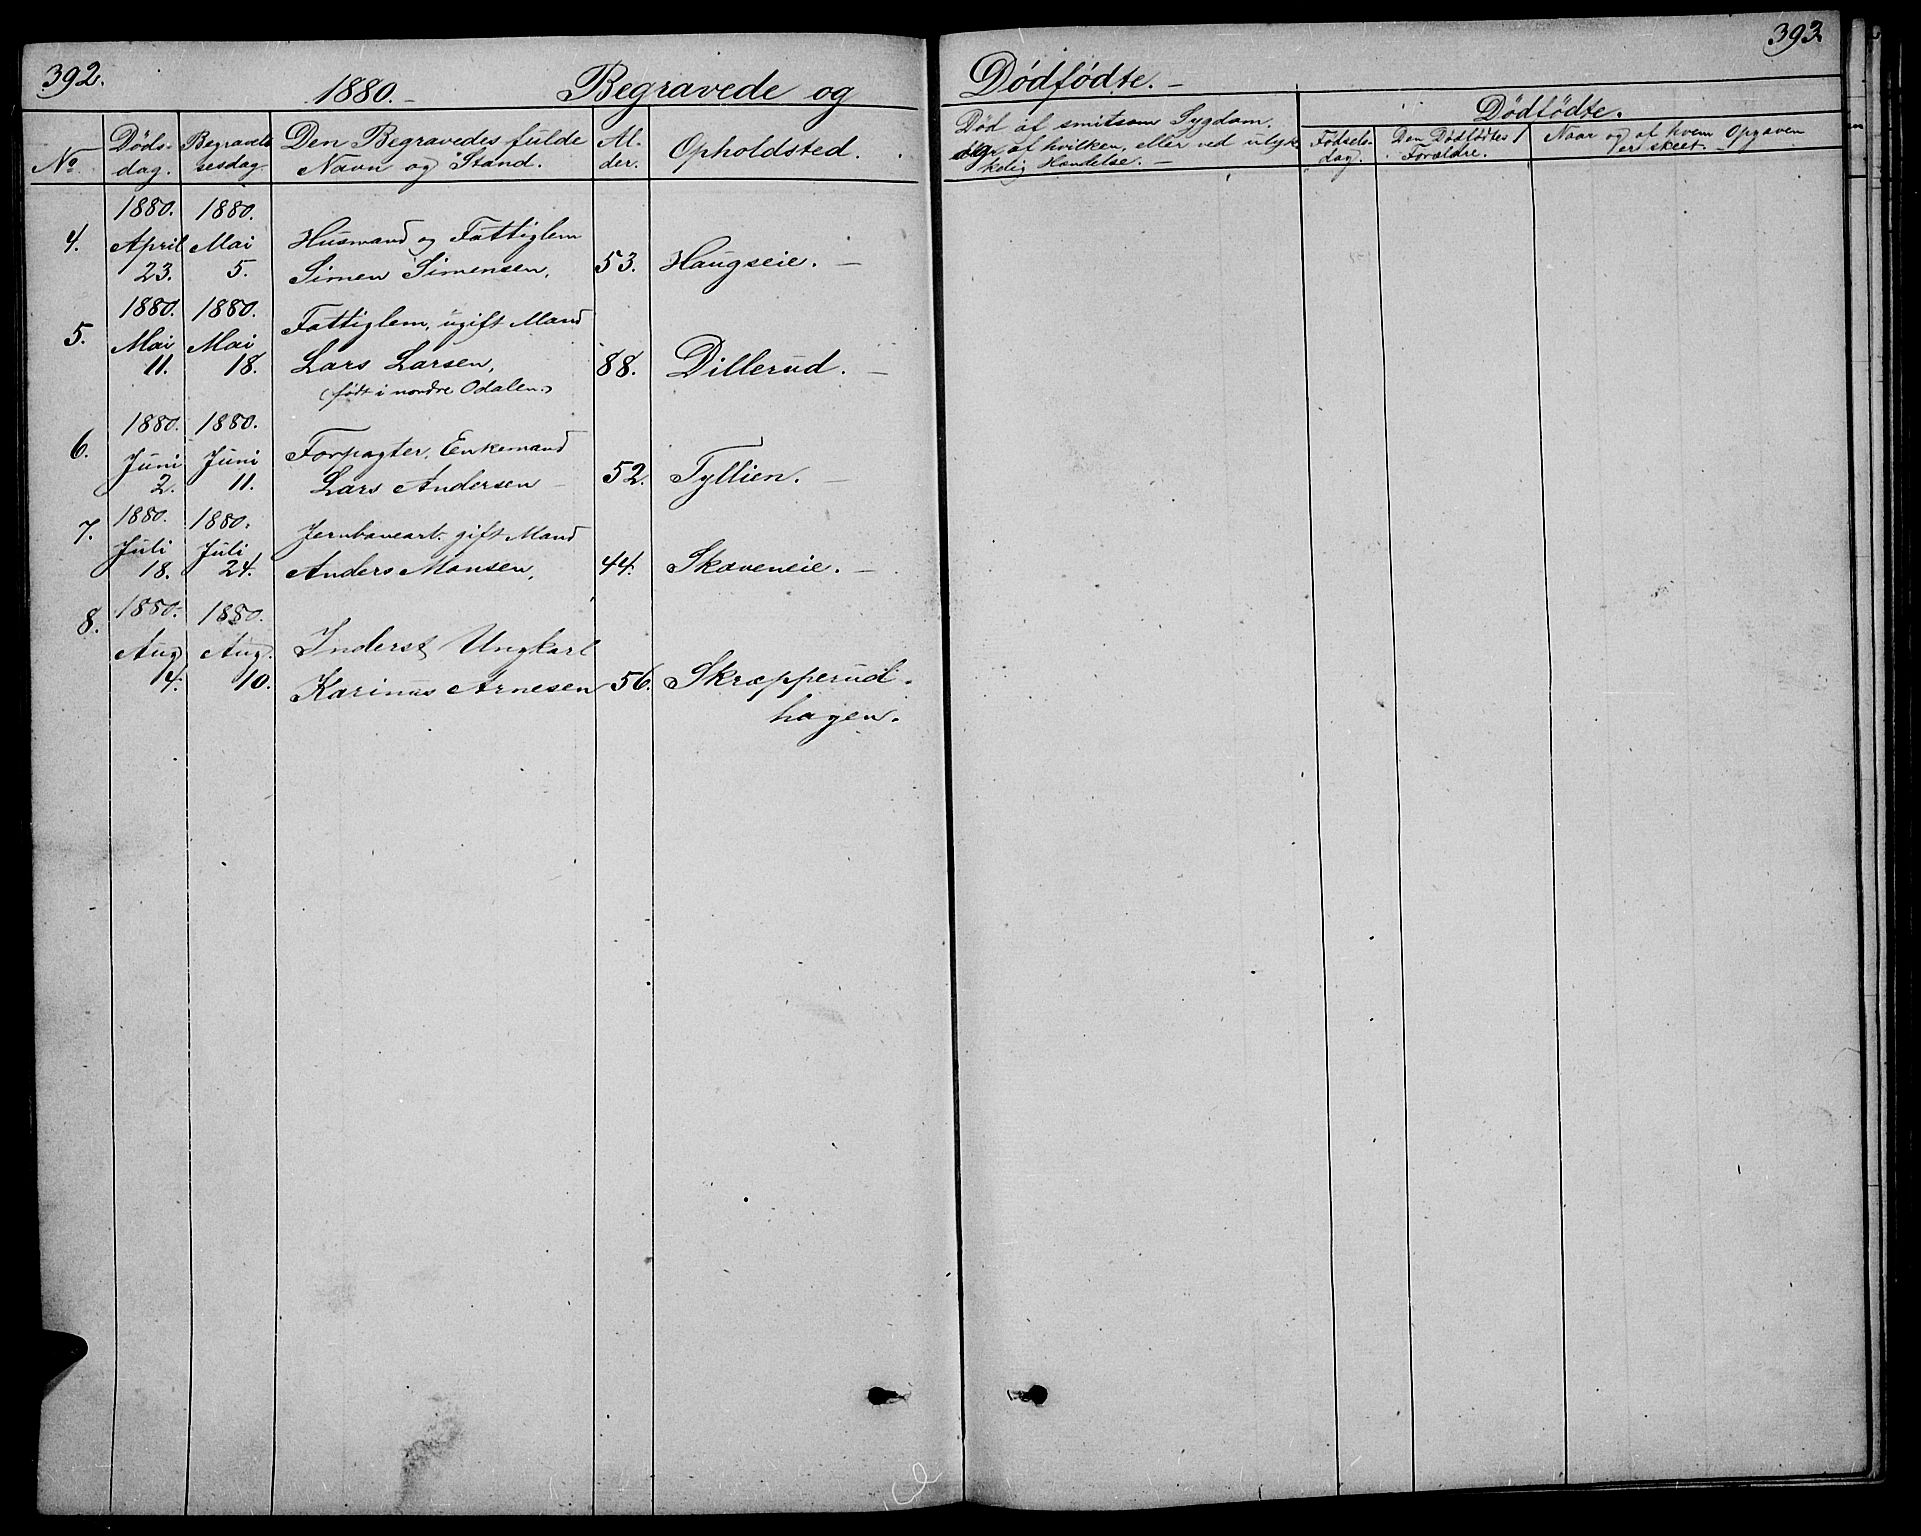 392.
1880.- Begravede og
No Døds- Begravel- Den Begravedes fulde Al- Opholdsted.
dag. sesdag Navn og Stand. der.
1880. 1880.
4. April Mai Husmand og Fattiglem
23. 5. Simen Simensen, 53. Haugseie. -
1880. 1880.
5. Mai Mai Fattiglem, ugift Mand
11. 18. Lars Larsen, 88. Dillerud. -
(født i nordre Odalen.)
1880. 1880.
6. Juni Juni Forpagter, Enkemand
2. 11. Lars Andersen - 52. Tyllien. -
1880. 1880.
7. Juli Juli Jernbanearb. gift Mand
18. 24. Anders Monsen, 44. Skæveneie. -
8. 1880. 1880.
Aug. Aug. Inderst Ungkarl
4. 10. Karinus Arnesen 56. Skræpperud-
hagen.
393.
Dødfødte. -
Død af smitsom Sygdom,
af hvilken, eller ved ulyk-
kelig Hændelse. -
Dødfødte.
Fødsels- Den Dødfødtes Naar og af hvem Opgaven
dag. Forældre. er skeet. -